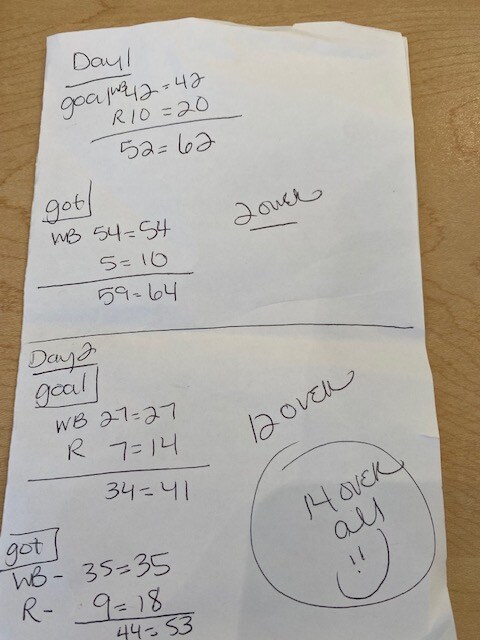 Day 1
goal WB 42 = 42
R 10 = 20
52 = 62
got
WB 54 = 54
5 = 10
59 = 64
2 over
Day 2
goal
WB 27 = 27
R 7 = 14
34 = 41
12 over
14 over
all
!!
got
WB - 35 = 35
R - 9 = 18
44 = 53